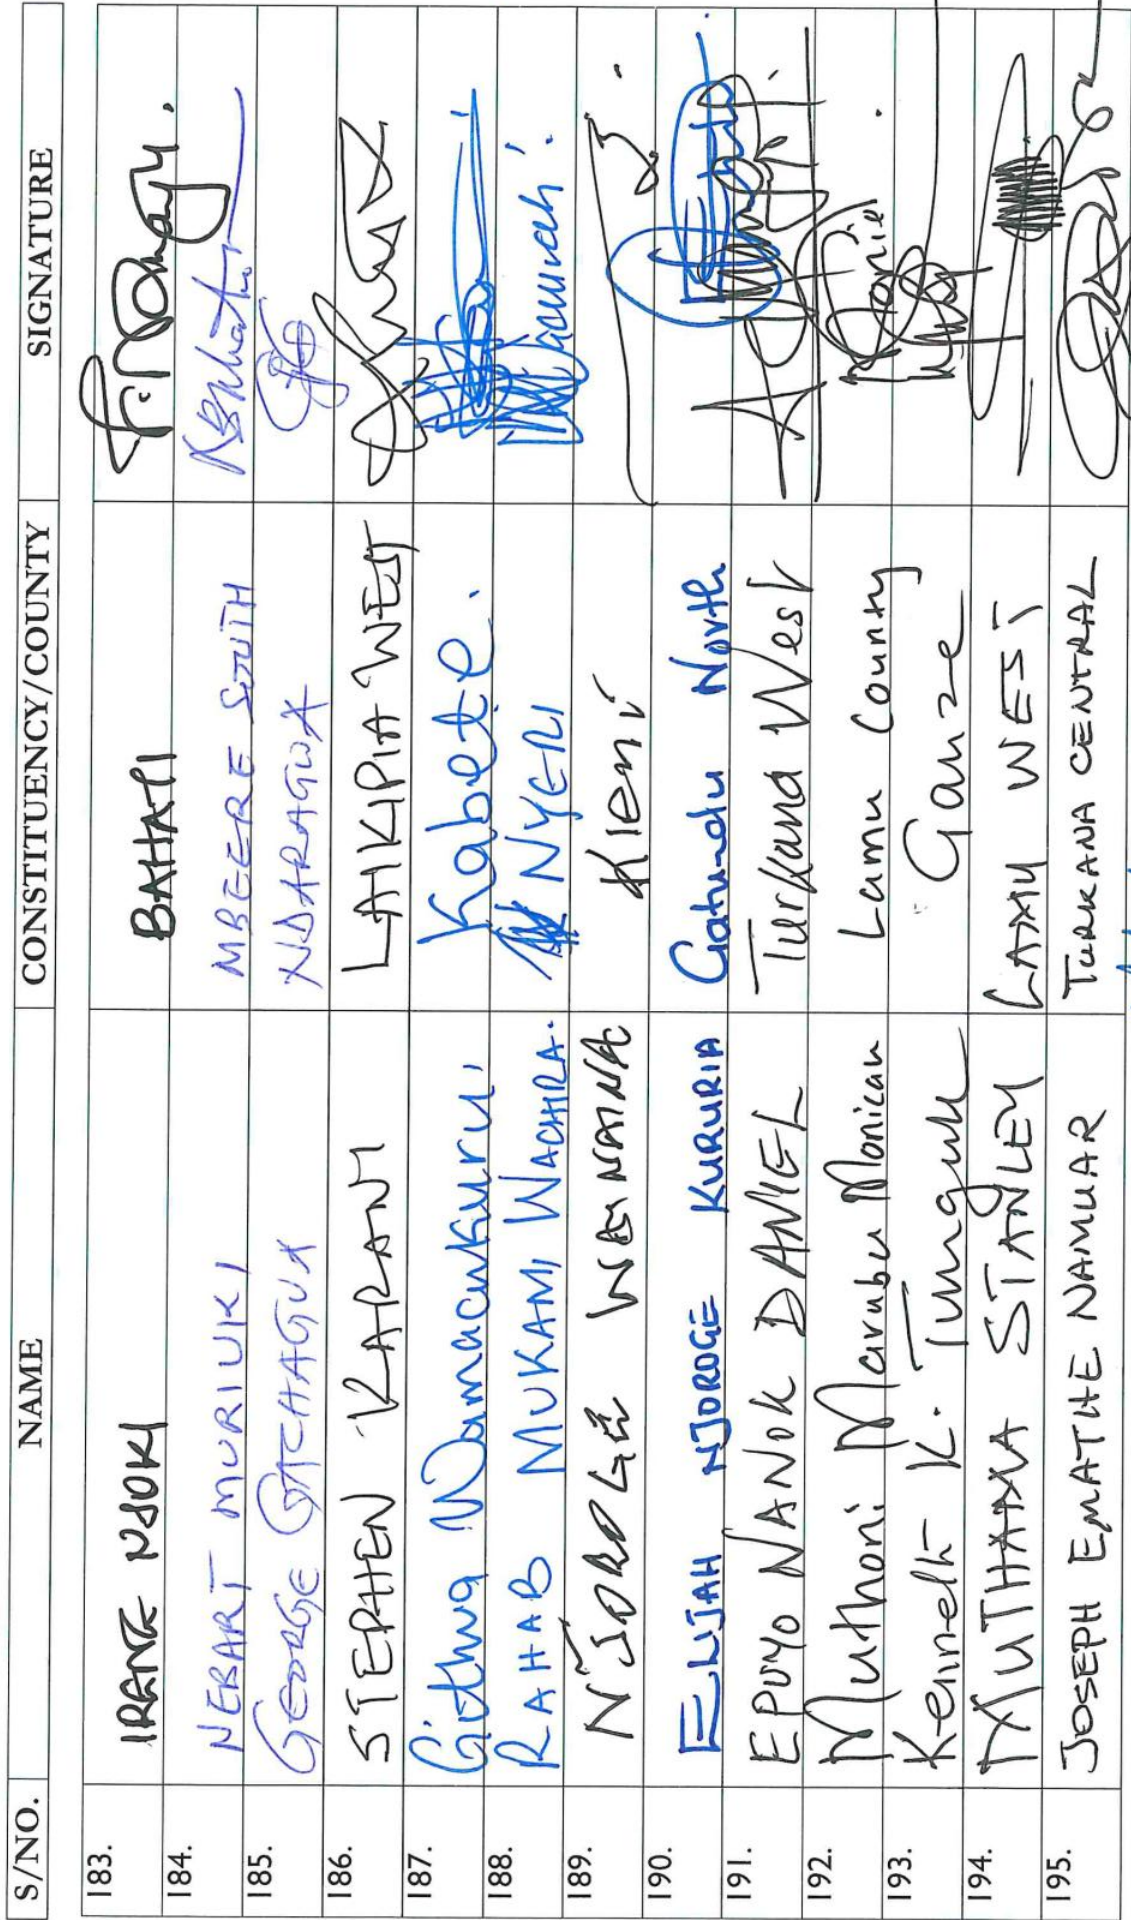 S/NO. NAME CONSTITUENCY/COUNTY SIGNATURE
183. IRENE NJOKI BAHATI
184. NEBART MURIUKI MBEERE SOUTH
185. GEORGE GACHAGUA NDARAGWA
186. STEPHEN KARANI LAIKIPIA WEST
187. Githua Wamacukuru Kabete.
188. RAHAB MUKAMI WACHIRA. NYERI
189. NJOROGE WAINAINA Kieni
190. ELIJAH NJOROGE KURURIA Gatundu North
191. EPUYO NANOK DANIEL Turkana West
192. Muthoni Marubu Monicah Lamu County
193. Kenneth K. Tungule Ganze
194. MUTHAMA STANLEY LAMU WEST
195. JOSEPH EMATHE NAMUAR TURKANA CENTRAL